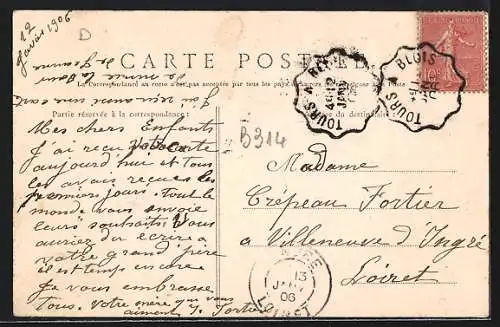 12
Janvier 1906
D
CARTE POSTALE
La Correspondance au recto n'est pas acceptée par tous les pays étrangers
Partie réservée à la correspondance
du destinataire
B314
TOURS A BLOIS
TOURS A BLOIS
10
Mes chers Enfants
J'ai reçu votre carte
aujourd'hui et tous
les avais reçues les
premiers jours. tout le
monde vous envoie
leurs souhaits. Vous
auriez du ecrire a
votre grand père
il est temps encore
Je vous embrasse
tous. Votre mère qui vous
aiment J. Fortier
Madame
Crépeau Fortier
a Villeneuve d'Ingré
Loiret
13
JANV
06
LOIRET